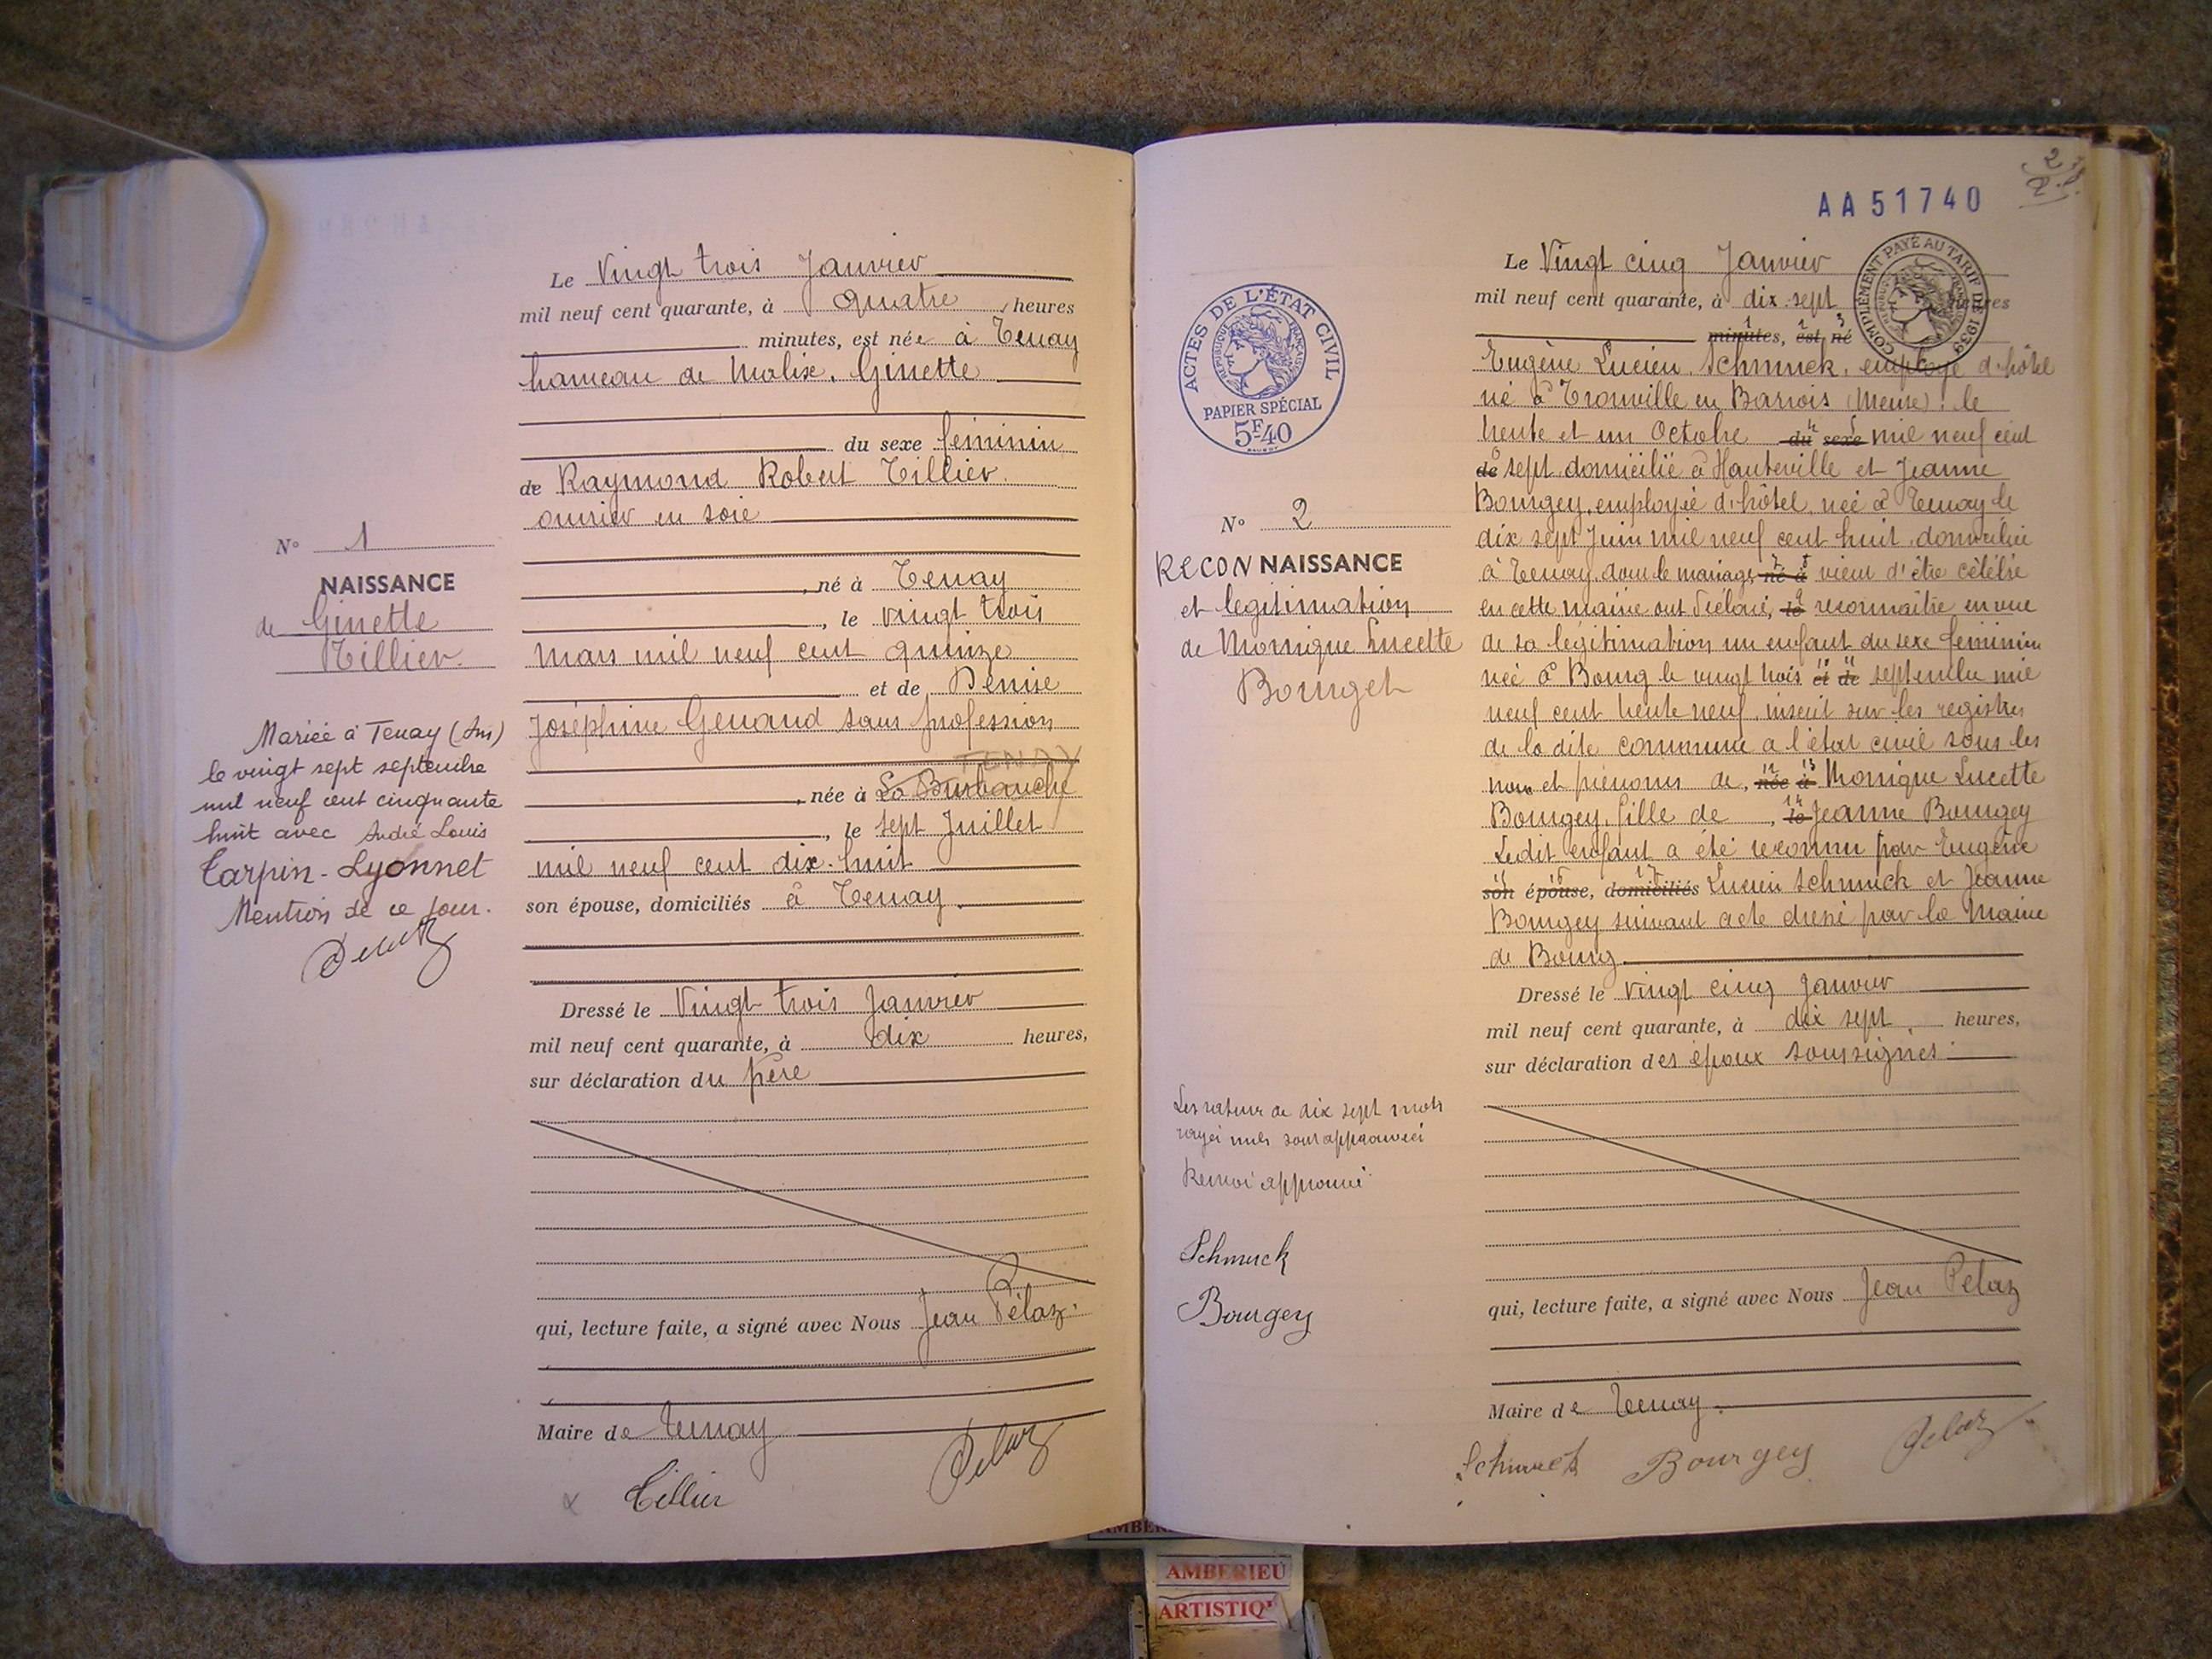 Le Vingt trois Janvier
mil neuf cent quarante, à quatre heures
minutes, est née à Tenay
hameau de Malix, Ginette
du sexe féminin
de Raymond Robert Tillier
ouvrier en soie
né à Tenay
, le vingt trois
mars mil neuf cent quinze
et de Denise
Joséphine Genand sans profession
TENAY
, née à La Burbanche
, le sept Juillet
mil neuf cent dix-huit
son épouse, domiciliés à Tenay.
Dressé le Vingt trois Janvier
mil neuf cent quarante, à dix heures,
sur déclaration du père
qui, lecture faite, a signé avec Nous Jean Pélaz.
Maire de Tenay
Tillier Pelaz
N° 1
NAISSANCE
de Ginette
Tillier.
Mariée à Tenay (Ain)
le vingt sept septembre
mil neuf cent cinquante
huit avec André Louis
Tarpin-Lyonnet
Mention de ce jour.
AA51740
2
Le Vingt cinq Janvier
mil neuf cent quarante, à dix-sept heures
minutes, est né
COMPLÉMENT PAYÉ AU TARIF DE 1939
Eugène Lucien Schmuck, employé d'hôtel
né à Tronville en Barrois (Meuse) le
trente et un Octobre du sexe mil neuf cent
de sept domicilié à Hauteville et Jeanne
Bourgey, employée d'hôtel, née à Tenay le
dix sept Juin mil neuf cent huit, domiciliée
à Tenay, dont le mariage né à vient d'être célébré
en cette mairie ont déclaré, le reconnaître en vue
de sa légitimation un enfant du sexe féminin
née à Bourg le vingt trois et de septembre mil
neuf cent trente neuf, inscrit sur les registres
de la dite commune à l'état civil sous les
nom et prénoms de, née à Monique Lucette
Bourgey, fille de , le Jeanne Bourgey
Ledit enfant a été reconnu par Eugène
son épouse, domiciliés Lucien Schmuck et Jeanne
Bourgey suivant acte dressé par la Mairie
de Bourg
Dressé le vingt cinq Janvier
mil neuf cent quarante, à dix sept heures,
sur déclaration des époux soussignés.
qui, lecture faite, a signé avec Nous Jean Pelaz
Maire de Tenay.
Schmuck Bourgey Pelaz
ACTES DE L'ÉTAT CIVIL
RÉPUBLIQUE FRANÇAISE
PAPIER SPÉCIAL
5F40
N° 2
RECONNAISSANCE
et légitimation
de Monique Lucette
Bourget
de dix sept mots
rayés nuls sont approuvés
Renvoi approuvé
Schmuck
Bourgey
AMBERIEU
ARTISTIQ